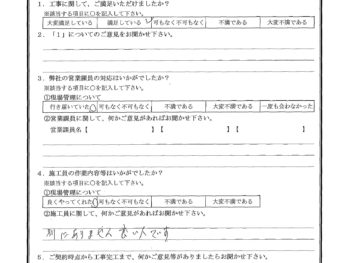 1．工事に関して、ご満足いただけましたか？
※該当する項目に○を記入して下さい。
大変満足している 満足している 可もなく不可もなく 不満である 大変不満である
2．「1」についてのご意見をお聞かせ下さい。
3．弊社の営業課員の対応はいかがでしたか？
※該当する項目に○を記入して下さい。
①現場管理について
行き届いていた 可もなく不可もなく 不満である 大変不満である 一度も会わなかった
②営業課員に関して、何かご意見があればお聞かせ下さい。
営業課員名【 】【 】【 】
4．施工員の作業内容等はいかがでしたか？
※該当する項目に○を記入して下さい。
①現場管理について
良くやってくれた 可もなく不可もなく 不満である 大変不満である
②施工員に関して、何かご意見があればお聞かせ下さい。
別にありません 良い人です
5．ご契約時点から工事完工まで、何かご意見等がありましたらお聞かせ下さい。